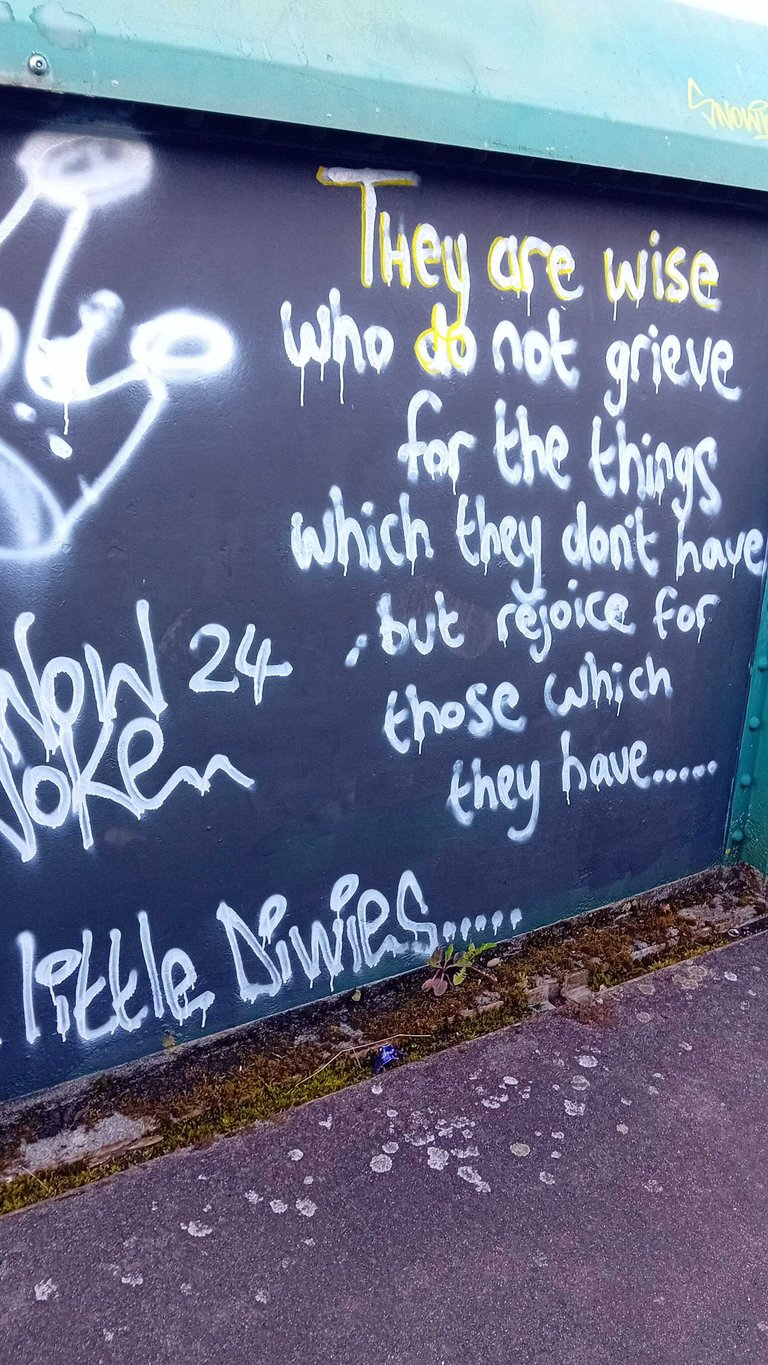 They are wise
who do not grieve
for the things
which they don't have
, but rejoice for
those which
they have.....
NOW 24
little Diwies.....